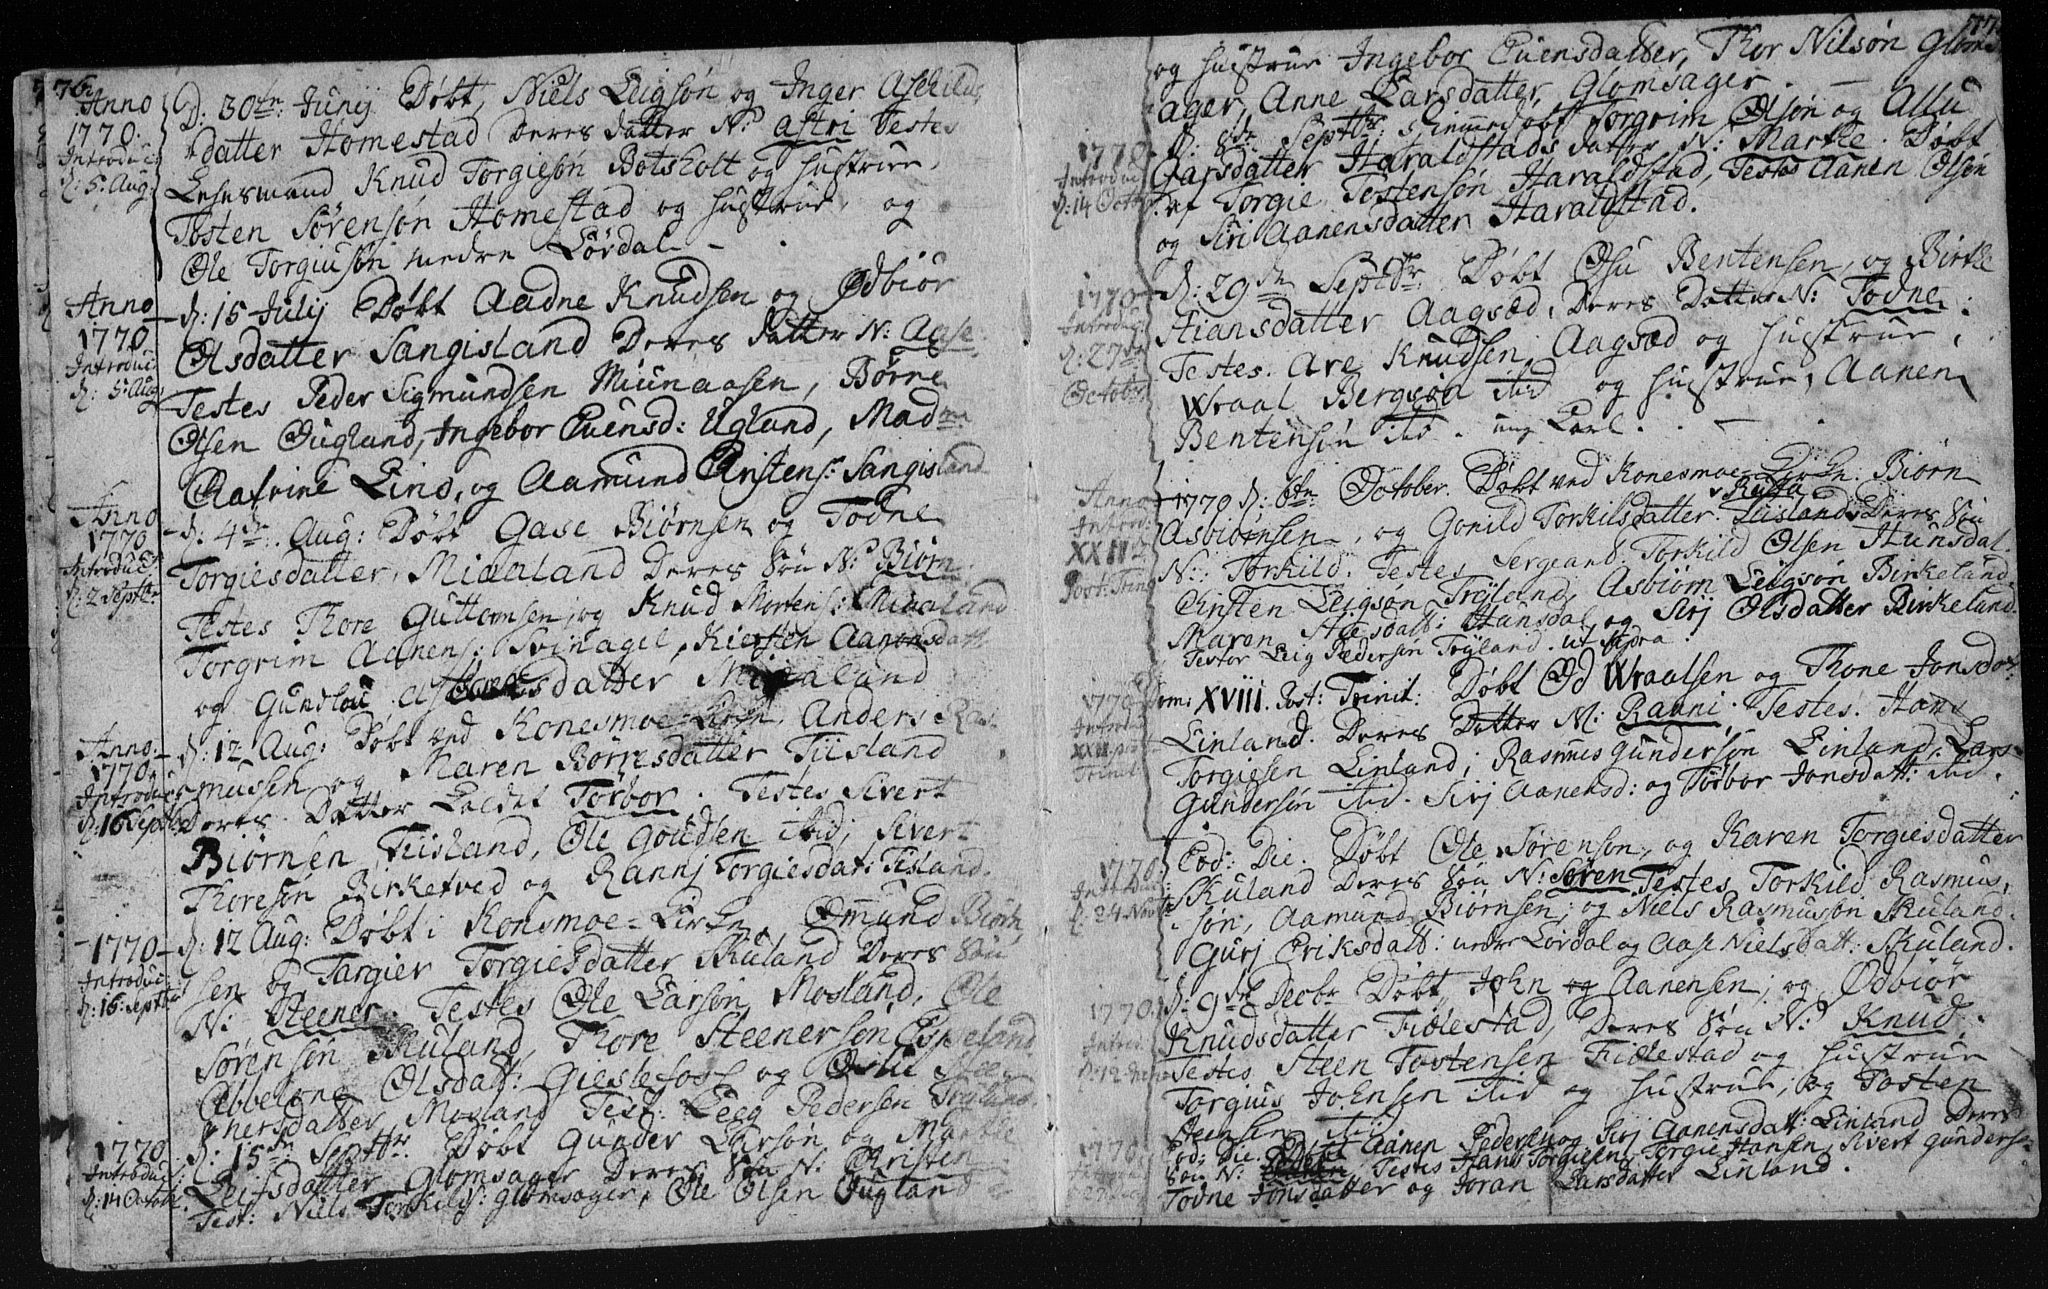 76.
Anno
1770.
Introduc:
d: 5: Aug:
D: 30te Junij Døbt, Niels Leigsøn og Inger Aschilds
datter Homestad Deres datter N: Astri Testes
Lehnsmand Knud Torgiesøn Botsholt og Hustrue,
Tosten Sørensøn Homestad og Hustrue, og
Ole Torgiusøn nedre Lørdal
Anno
1770
Introduc:
d: 5 Aug:
d: 15 Julij Døbt Aadne Knudsen og Ødbiør
Olsdatter Sangisland Deres datter N: Aase.
Testes Peder Sigmundsen Miunaasen, Børne
Olsen Øugland, Ingebor Euensd: Ugland, Madme
Catrine Lind, og Aamund Cristens: Sangisland
Anno
1770
Introduc:
d: 2 Septbr:
d: 4de Aug: Døbt Gase Biørnsen og Todne
Torgiesdatter, Miaaland Deres Søn N: Biørn.
Testes Thore Guttomsen, og Knud Mortens: Miaaland
Torgrim Aanens: Svinagel, Kiersten Aanensdatt:
og Gunslou datter Miaaland
Anno
1770
Introduc:
d: 16 Septbr:
d: 12 Aug: Døbt ved Konesmoe Kirke, Anders Ras-
mussen og Maren Børresdatter Tiisland
Deres Datter Kaldet Torbor. Testes Sivert
Biørnen Tiisland, Ole Goudsen ibid, Sivert
Thoresøn Birketved og Rannj Torgiesdat: Tisland.
1770
Introduc:
d: 16: Septbr
d: 12 Aug: Døbt i Konsmoe-Kirke, Omund Biørn
sen og Targier Torgiesdatter Skuland Deres Søn
N: Steener. Testes Ole Larsøn Mosland, Ole
Sørensøn Skuland, Thore Steenersøn Espeland
Abbelone Olsdatt: Gieslefoss og Oslu Stee-
nersdatter Mosland Test: Leeg Pedersen Trøland.
1770
Introduc:
d: 14 Octobr:
d: 15de Septbr: Døbt Gunder Larsøn og Marthe
Leifsdatter Glomsager Deres Søn N: Christen
Test: Niels Torkilds: Glomsager, Ole Olsen Øugland
77.
og Hustrue Ingebor Euensdatter, Thor Nilsøn Gloms
ager, Anne Larsdatter, Glomsager.
1770
Introduc
d: 14 Octbr
d: 8de Septbr: Hiemmedøbt Torgrim Olsøn og Allu
Garsdatter Haraldstads datter N: Marthe. Døbt
af Torgie Tostensøn Haraldstad, Testes Aanen Olsøn
og Siri Aanensdatter Haraldstad.
1770
Introduc:
d: 27de
October
d: 29de Septbr: Døbt Osu Bentensen, og Birke
Stiansdatter Aagsæd, Deres Datter N: Todne:
Testes. Are Knudsen Aagsæd og Hustrue,
Wraal Bergsøn ibid og Hustrue, Aanen
Bentensøn ibid. ung Karl.
Anno
Introd:
XXII
Post: Trin:
1770 d: 6te October. Døbt ved Konesmoe-Kirke. Biørn
Asbiørnsen, og Gonild Torkilsdatter Røssa Tiisland Deres Søn
N: Torkild. Testes Sergeand: Torkild Olsen Hunsdal.
Christen Leigsøn Trøland, Asbiørn Leigsøn Birkeland,
Maren Stiesdatt: Hunsdal, og Sirj Olsdatter Birkeland.
Testor Leig Pedersen Trøyland. ut supra.
1770
Introd:
XXII post
Trinit:
Dom: XVIII. Post: Trinit: Døbt Od Wraalsen og Thone Jonsdatr:
Linland. Deres Datter N: Ranni. Testes. Hans
Torgiesen Linland, Rasmus Gundersøn Linland, Lars
Gundersøn ibid. Sirj Aanensd: og Torbor Jonsdatt: ibid.
1770
Introduc:
d: 24 Novb:
Eod: Die. Døbt Ole Sørensøn, og Karen Torgiesdatter
Skuland Deres Søn N: Søren Testes Torkild Rasmus-
søn, Aamund Biørnsen, og Niels Rasmusøn Skuland.
Gurj Eriksdatt: nedre Lørdal og Aase Nielsdatt: Skuland.
1770.
Introd:
d: 12
d: 9de Decbr Døbt John og Aanensen, og Ødbiør
Knudsdatter Fidlestad, Deres Søn N: Knud.
Testes Steen Tostensen Fidlestad og Hustrue
Torgius Johnsen ibid og Hustrue, og Tosten
Steensen ibid.
1770.
Eod: Die. Døbt Aanen Pedersen og Sirj Aanensdatt: Linland Deres
Søn N: Testes Hans Torgiesen, Torgie Hansen, Sivert Gunders-
Todne Jonsdatter og Joran Larsdatter Linland.